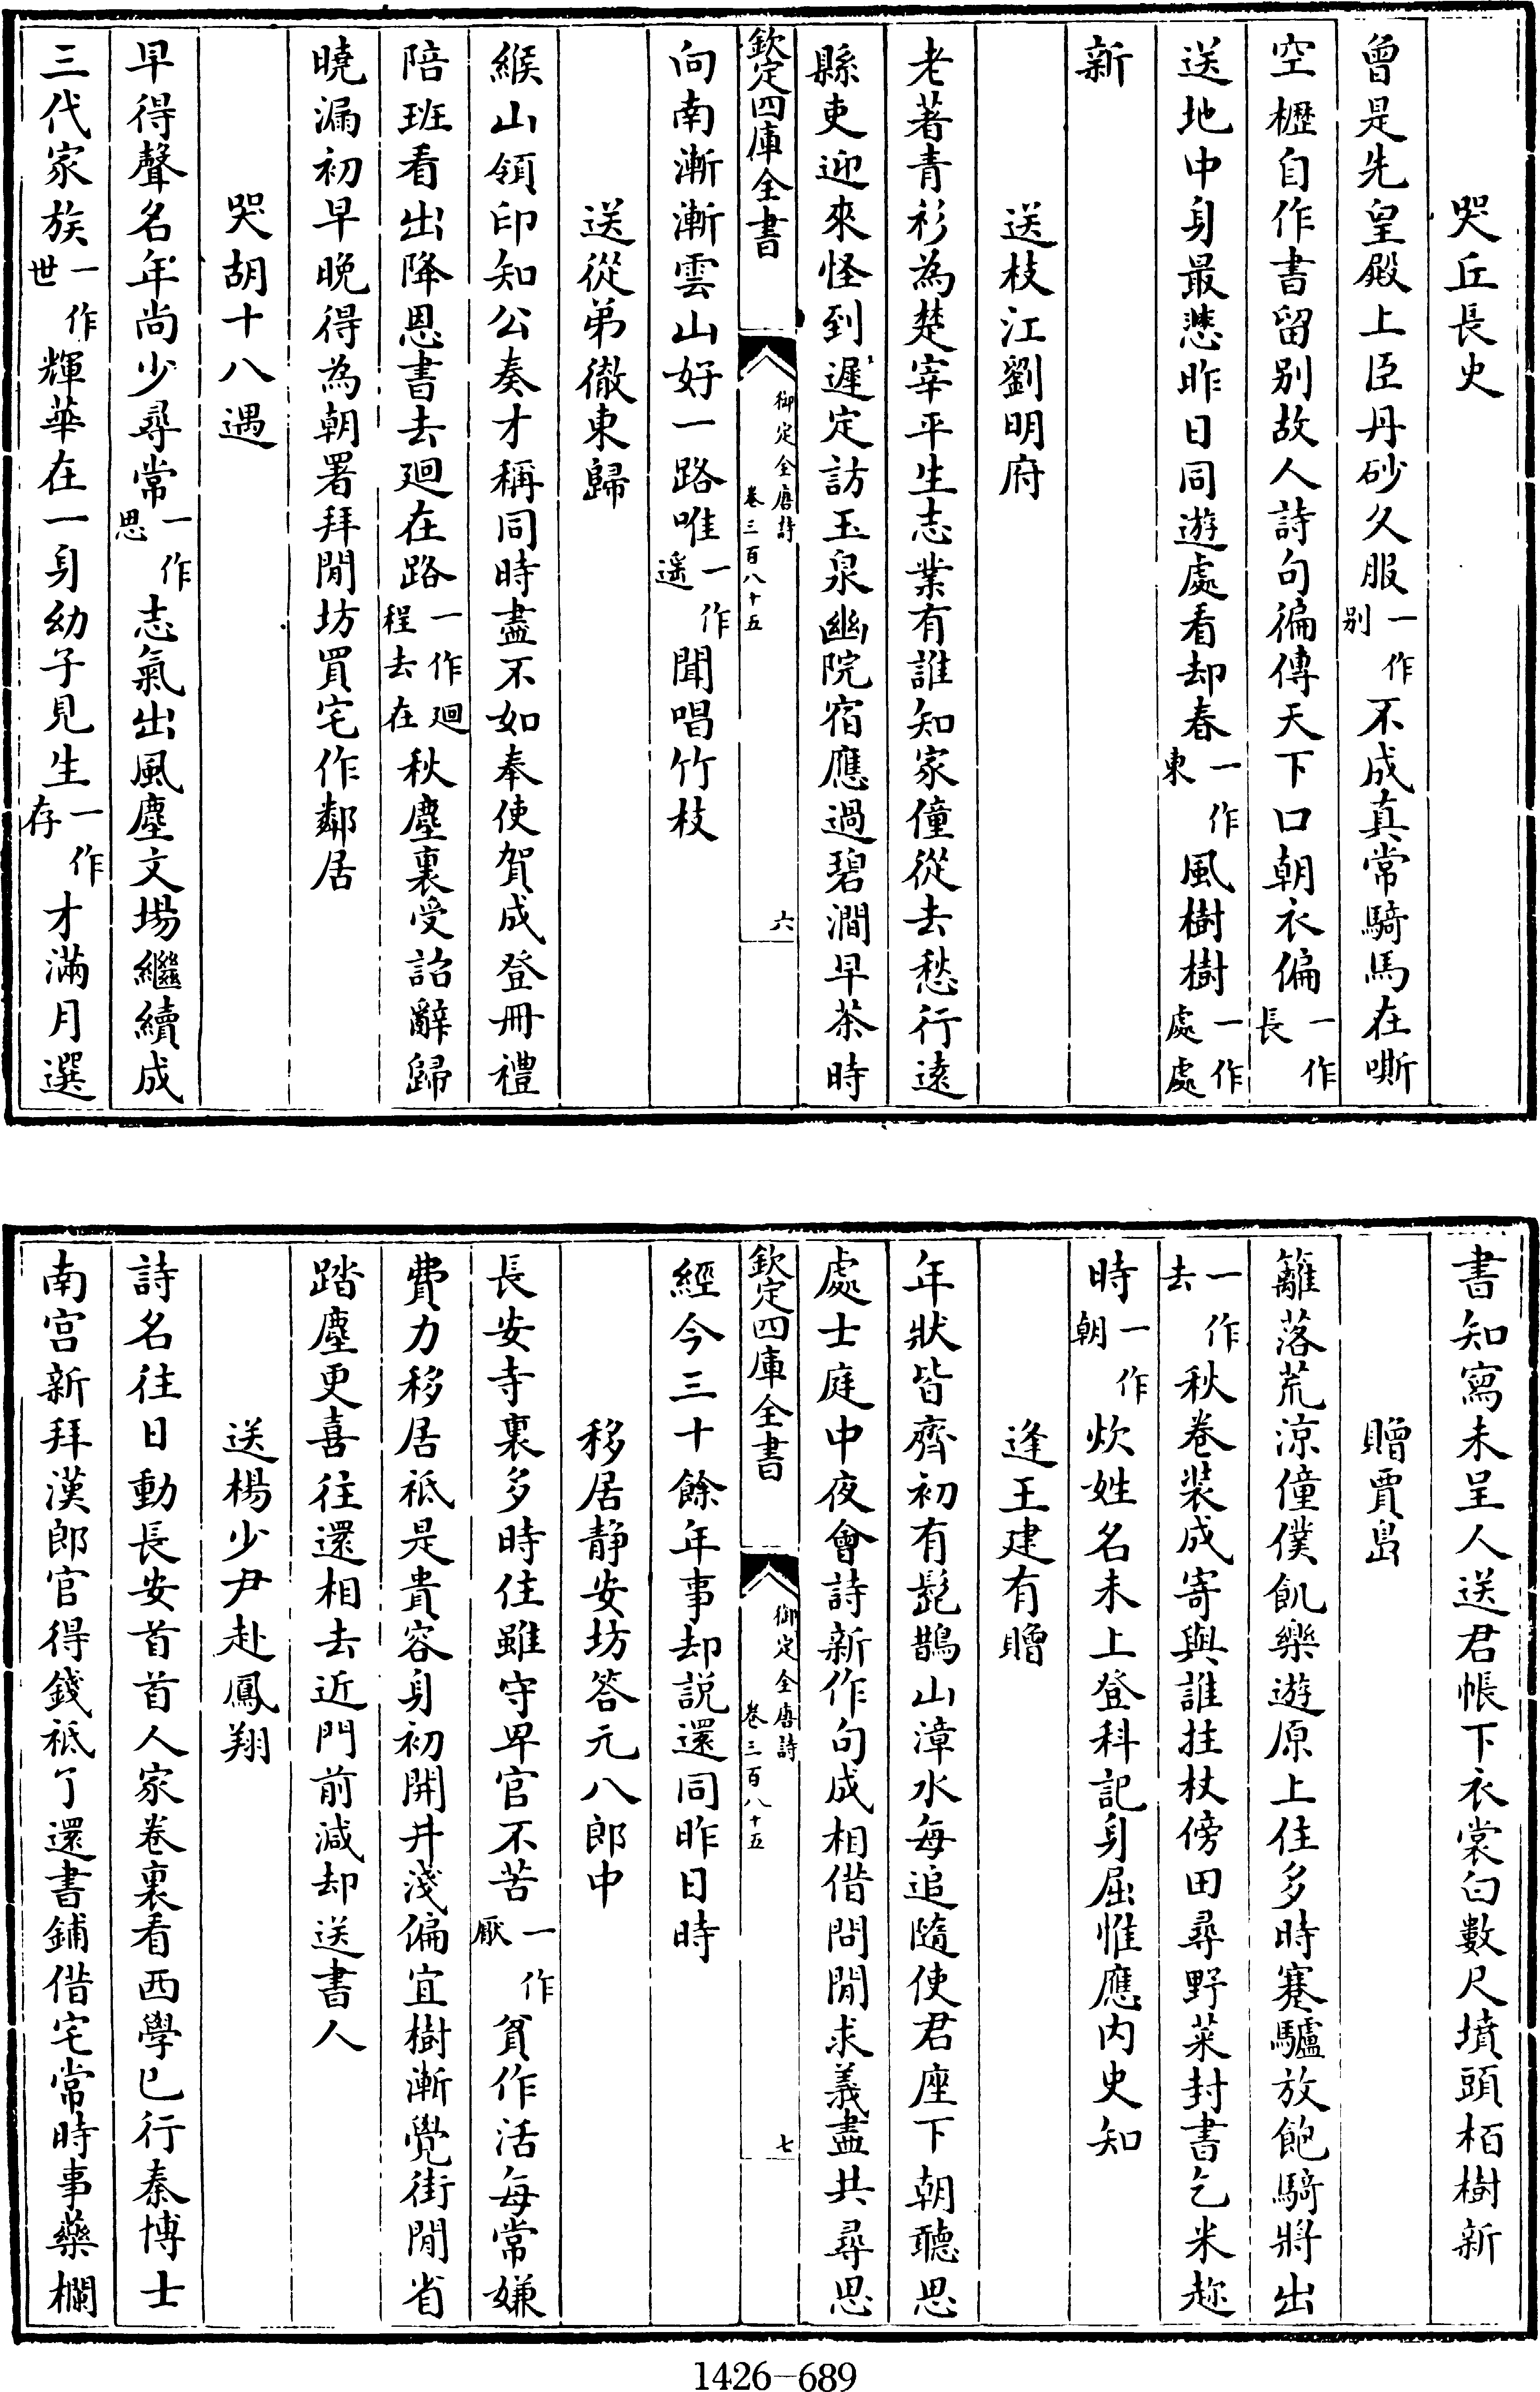 哭丘長史
曾是先皇殿上臣丹砂久服一作别不成真常騎馬在嘶
空櫪自作書留别故人詩句徧傳天下口朝衣偏一作長
送地中身最悲昨日同遊處看却春一作東風樹樹一作處處
新
送枝江劉明府
老著青衫為楚宰平生志業有誰知家僮從去愁行遠
縣吏迎來怪到遲定訪玉泉幽院宿應過碧澗早茶時
欽定四庫全書
御定全唐詩
卷三百八十五
六
向南漸漸雲山好一路唯一作遥聞唱竹枝
送從弟徹東歸
緱山領印知公奏才稱同時盡不如奉使賀成登冊禮
陪班看出降恩書去廻在路一作廻程去在秋塵裏受詔辭歸
曉漏初早晚得為朝署拜閒坊買宅作鄰居
哭胡十八遇
早得聲名年尚少尋常一作思志氣出風塵文場繼續成
三代家族一作世輝華在一身幼子見生一作存才滿月選
書知寫未呈人送君帳下衣裳白數尺墳頭栢樹新
贈賈島
籬落荒涼僮僕飢樂遊原上住多時蹇驢放飽騎將出
一作去秋卷裝成寄與誰拄杖傍田尋野菜封書乞米趂
時一作朝炊姓名未上登科記身屈惟應内史知
逢王建有贈
年狀皆齊初有髭鵲山漳水每追隨使君座下朝聽思
處士庭中夜會詩新作句成相借問閒求義盡共尋思
欽定四庫全書
御定全唐詩
卷三百八十五
七
經今三十餘年事却説還同昨日時
移居静安坊答元八郎中
長安寺裏多時住雖守卑官不苦一作厭貧作活每常嫌
費力移居祗是貴容身初開井淺偏宜樹漸覺街閒省
踏塵更喜往還相去近門前減却送書人
送楊少尹赴鳳翔
詩名往日動長安首首人家卷裏看西學已行秦博士
南宫新拜漢郎官得錢祗了還書鋪借宅常時事藥欄
1426-689